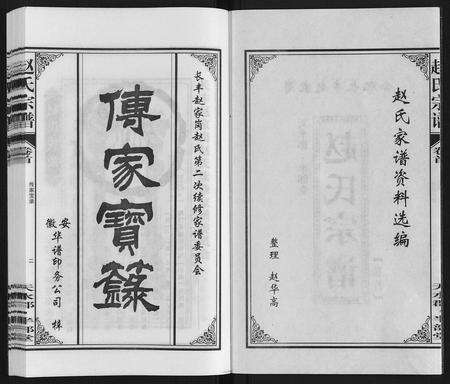 赵氏家谱资料选编
整理 赵华高
赵氏宗谱
卷首
长丰赵家岗赵氏第二次续修家谱委员会
傳家寶籙
安徽华谱印务公司 梓
赵氏宗谱
卷首
传家宝籙
二